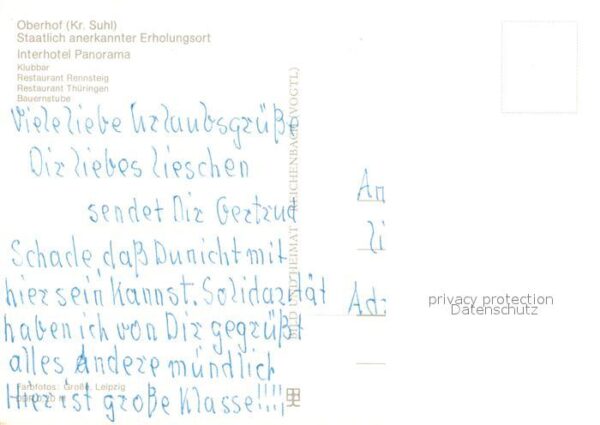 Oberhof (Kr. Suhl)
Staatlich anerkannter Erholungsort
Interhotel Panorama
Klubbar
Restaurant Rennsteig
Restaurant Thüringen
Bauernstube
Viele liebe Urlaubsgrüße
Dir liebes lieschen
sendet Dir Gertrud
Schade, daß Du nicht mit
hier sein kannst. Solidarität
haben ich von Dir gegrüßt
alles Andere mündlich
Hier ist große Klasse!!!!
Farbfotos: Große, Leipzig
BILD UND HEIMAT REICHENBACH (VOGTL)
An
li
Ad
privacy protection
Datenschutz